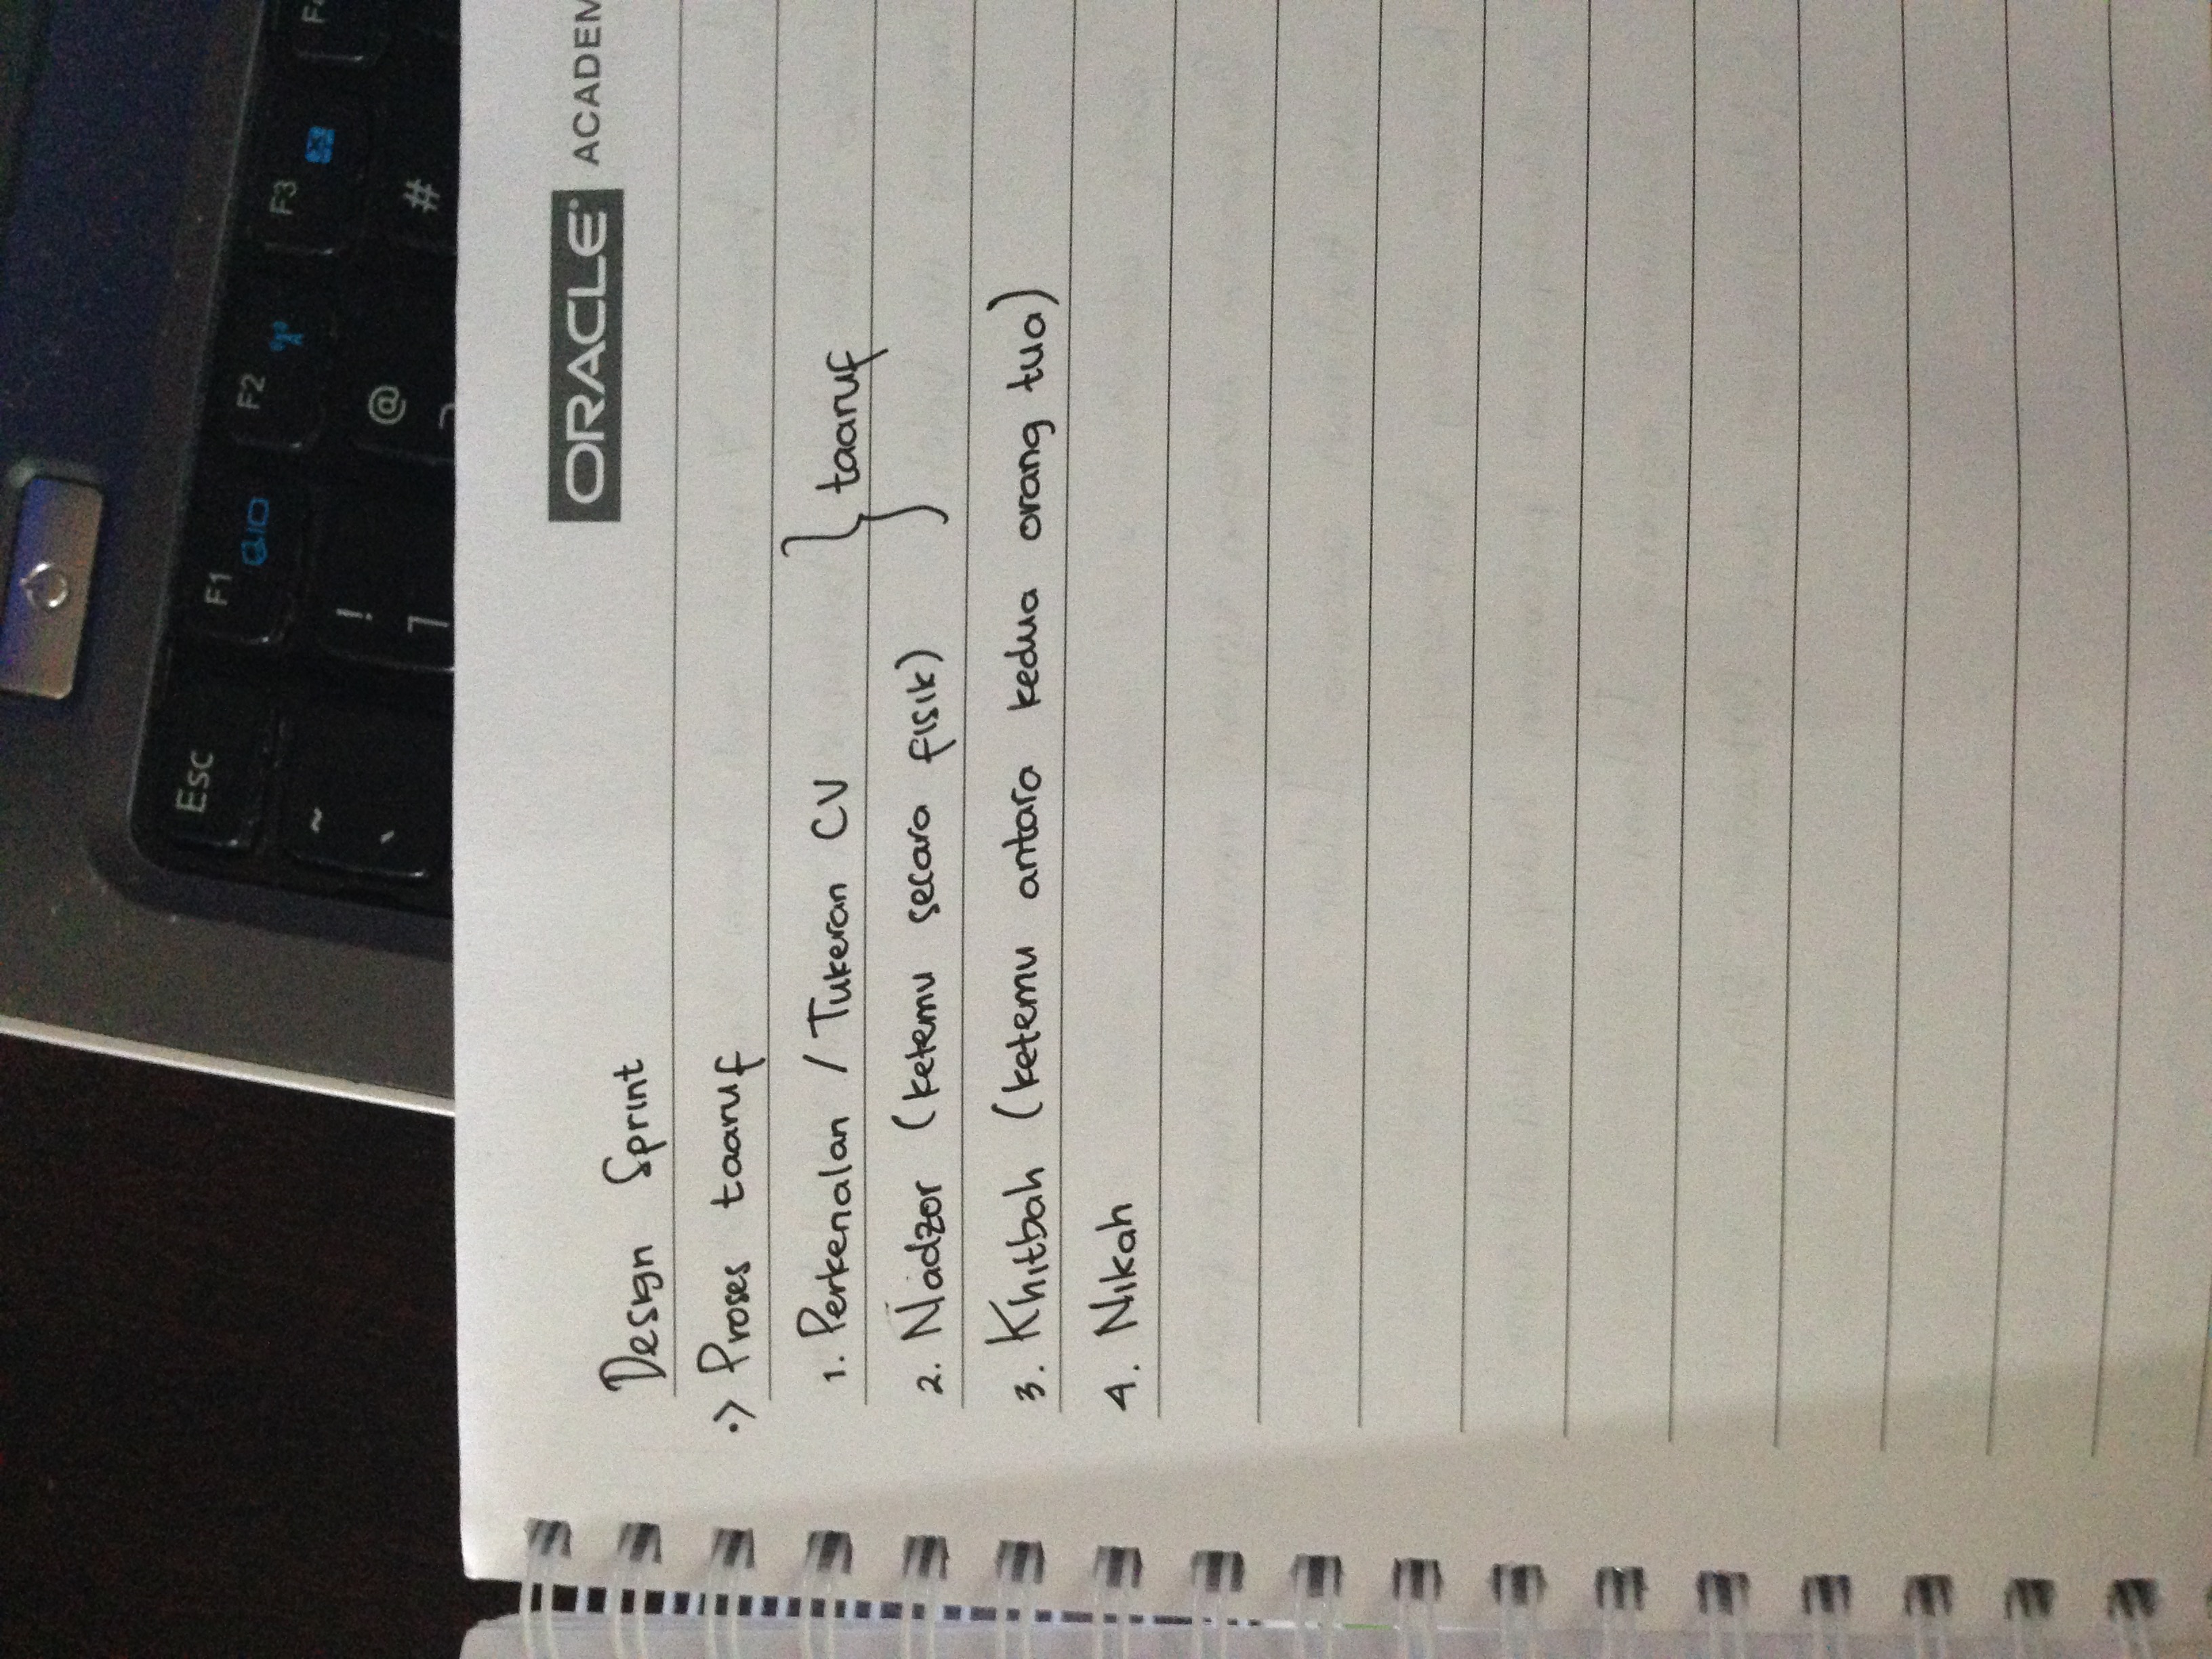 Esc F1 F2 F3
~ ! @ #
` 1
ORACLE ACADEM
Design Sprint
•> Proses taaruf
1. Perkenalan / Tukeran CV } taaruf
2. Nadzor (ketemu secara fisik)
3. Khitbah (ketemu antara kedua orang tua)
4. Nikah